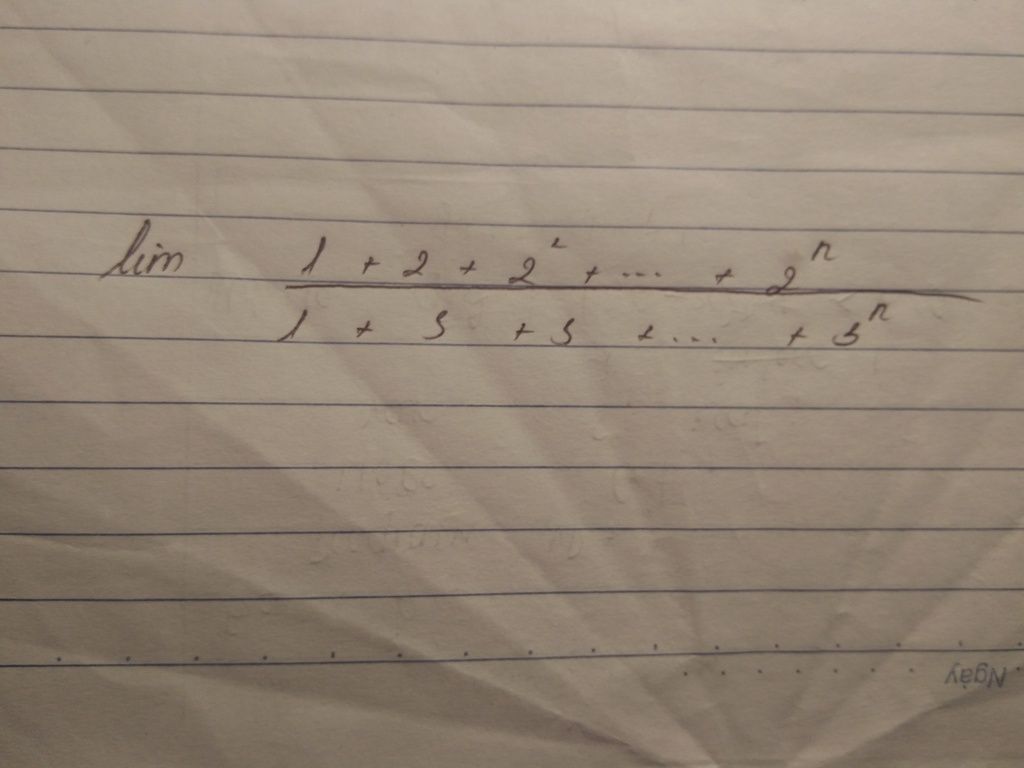 lim 1 + 2 + 2² + ... + 2ⁿ
1 + 3 + 3 + ... + 3ⁿ
Ngày